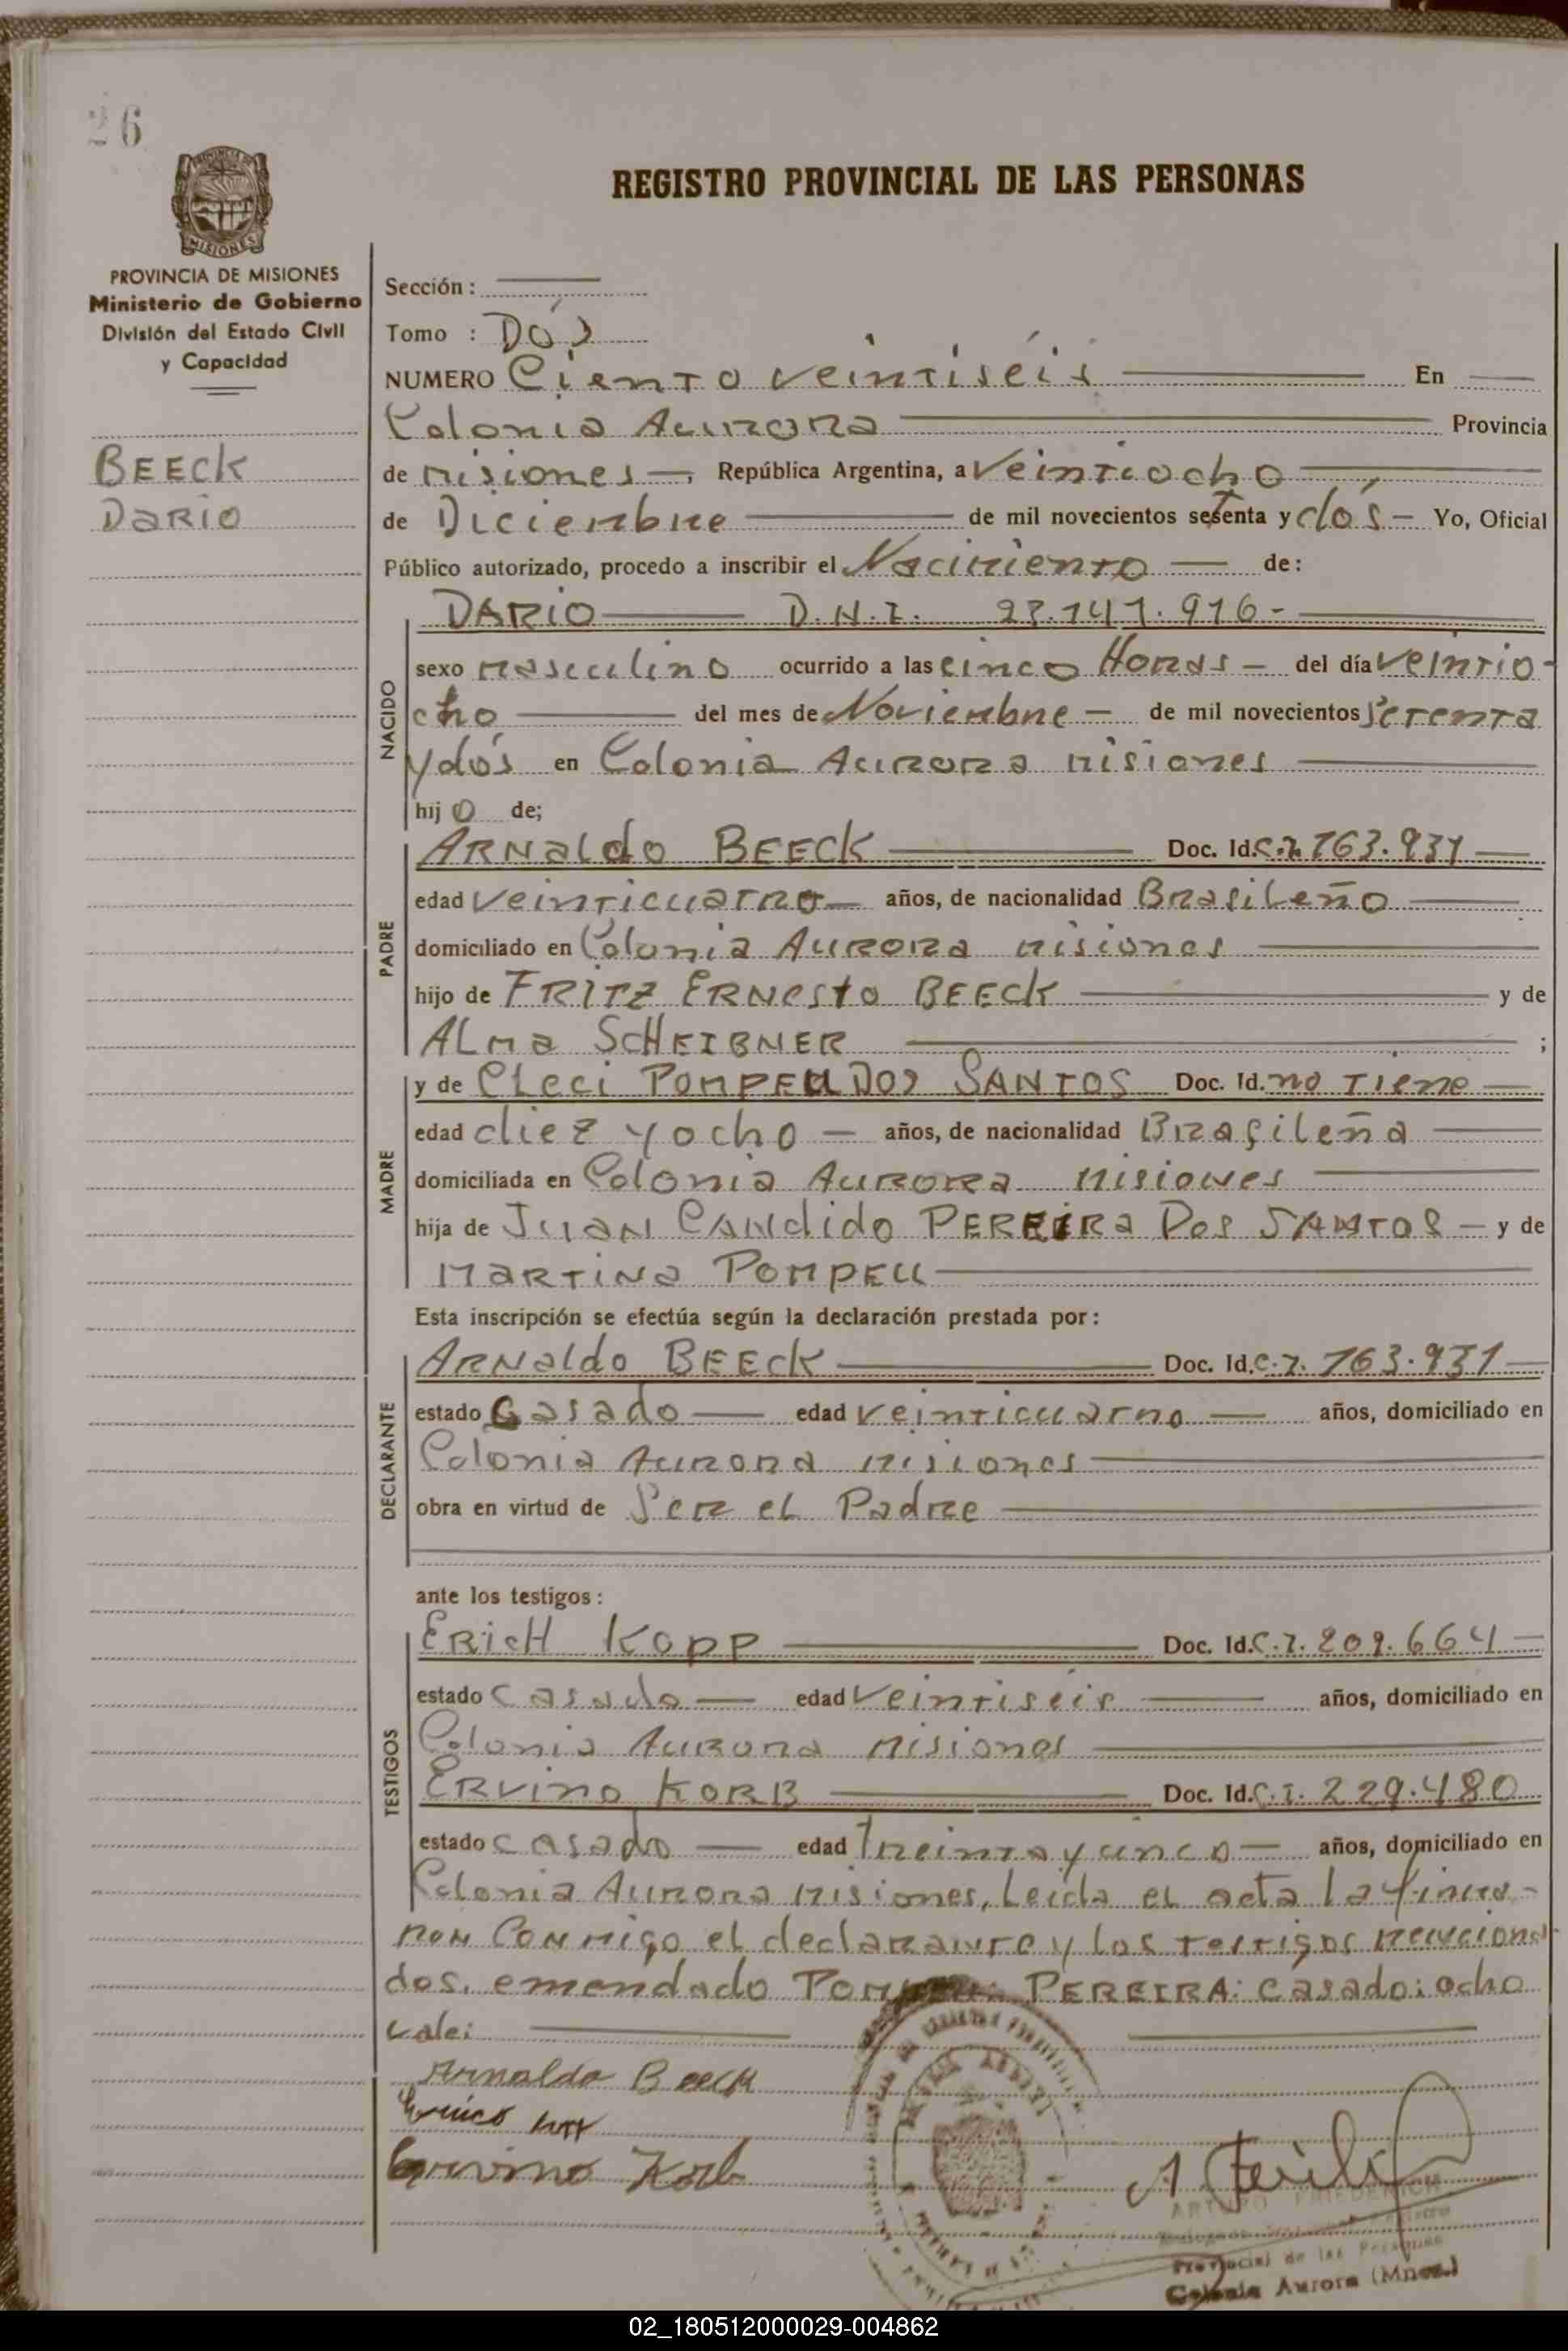 26
PROVINCIA DE MISIONES
Ministerio de Gobierno
División del Estado Civil
y Capacidad
BEECK
DARIO
REGISTRO PROVINCIAL DE LAS PERSONAS
Sección :
Tomo : Dós
NUMERO Ciento veintiséis En
Colonia Aurora Provincia
de Misiones República Argentina, a veintiocho
de Diciembre de mil novecientos setenta y dós Yo, Oficial
Público autorizado, procedo a inscribir el Nacimiento de:
NACIDO
DARIO D.N.I. 23.141.916-
sexo masculino ocurrido a las cinco Horas del día veintio-
cho del mes de Noviembre de mil novecientos setenta
y dós en Colonia Aurora Misiones
hijo de;
PADRE
ARNALDO BEECK Doc. Id. C.I. 763.931
edad veinticuatro años, de nacionalidad Brasileño
domiciliado en Colonia Aurora Misiones
hijo de FRITZ ERNESTO BEECK y de
ALMA SCHEIBNER ;
MADRE
y de CLECI POMPEU DOS SANTOS Doc. Id. no tiene
edad diez y ocho años, de nacionalidad Brasileña
domiciliada en Colonia Aurora Misiones
hija de JUAN CANDIDO PEREIRA DOS SANTOS y de
MARTINA POMPEU
Esta inscripción se efectúa según la declaración prestada por:
DECLARANTE
ARNALDO BEECK Doc. Id. C.I. 763.931
estado Casado edad veinticuatro años, domiciliado en
Colonia Aurora Misiones
obra en virtud de Ser el Padre
ante los testigos:
TESTIGOS
ERICH KOPP Doc. Id. C.I. 209.664
estado casado edad veintiséis años, domiciliado en
Colonia Aurora Misiones
ERVINO KORB Doc. Id. C.I. 229.480
estado casado edad treinta y cinco años, domiciliado en
Colonia Aurora Misiones, Leida el acta la firma-
ron conmigo el declarante y los testigos menciona-
dos. emendado POMPEU: PEREIRA: casado: ocho
vale:
Arnaldo Beeck
Ervino Korb
ARTURO FRIEDERICH
Provincial de las Personas
Colonia Aurora (Mnes.)
02_180512000029-004862